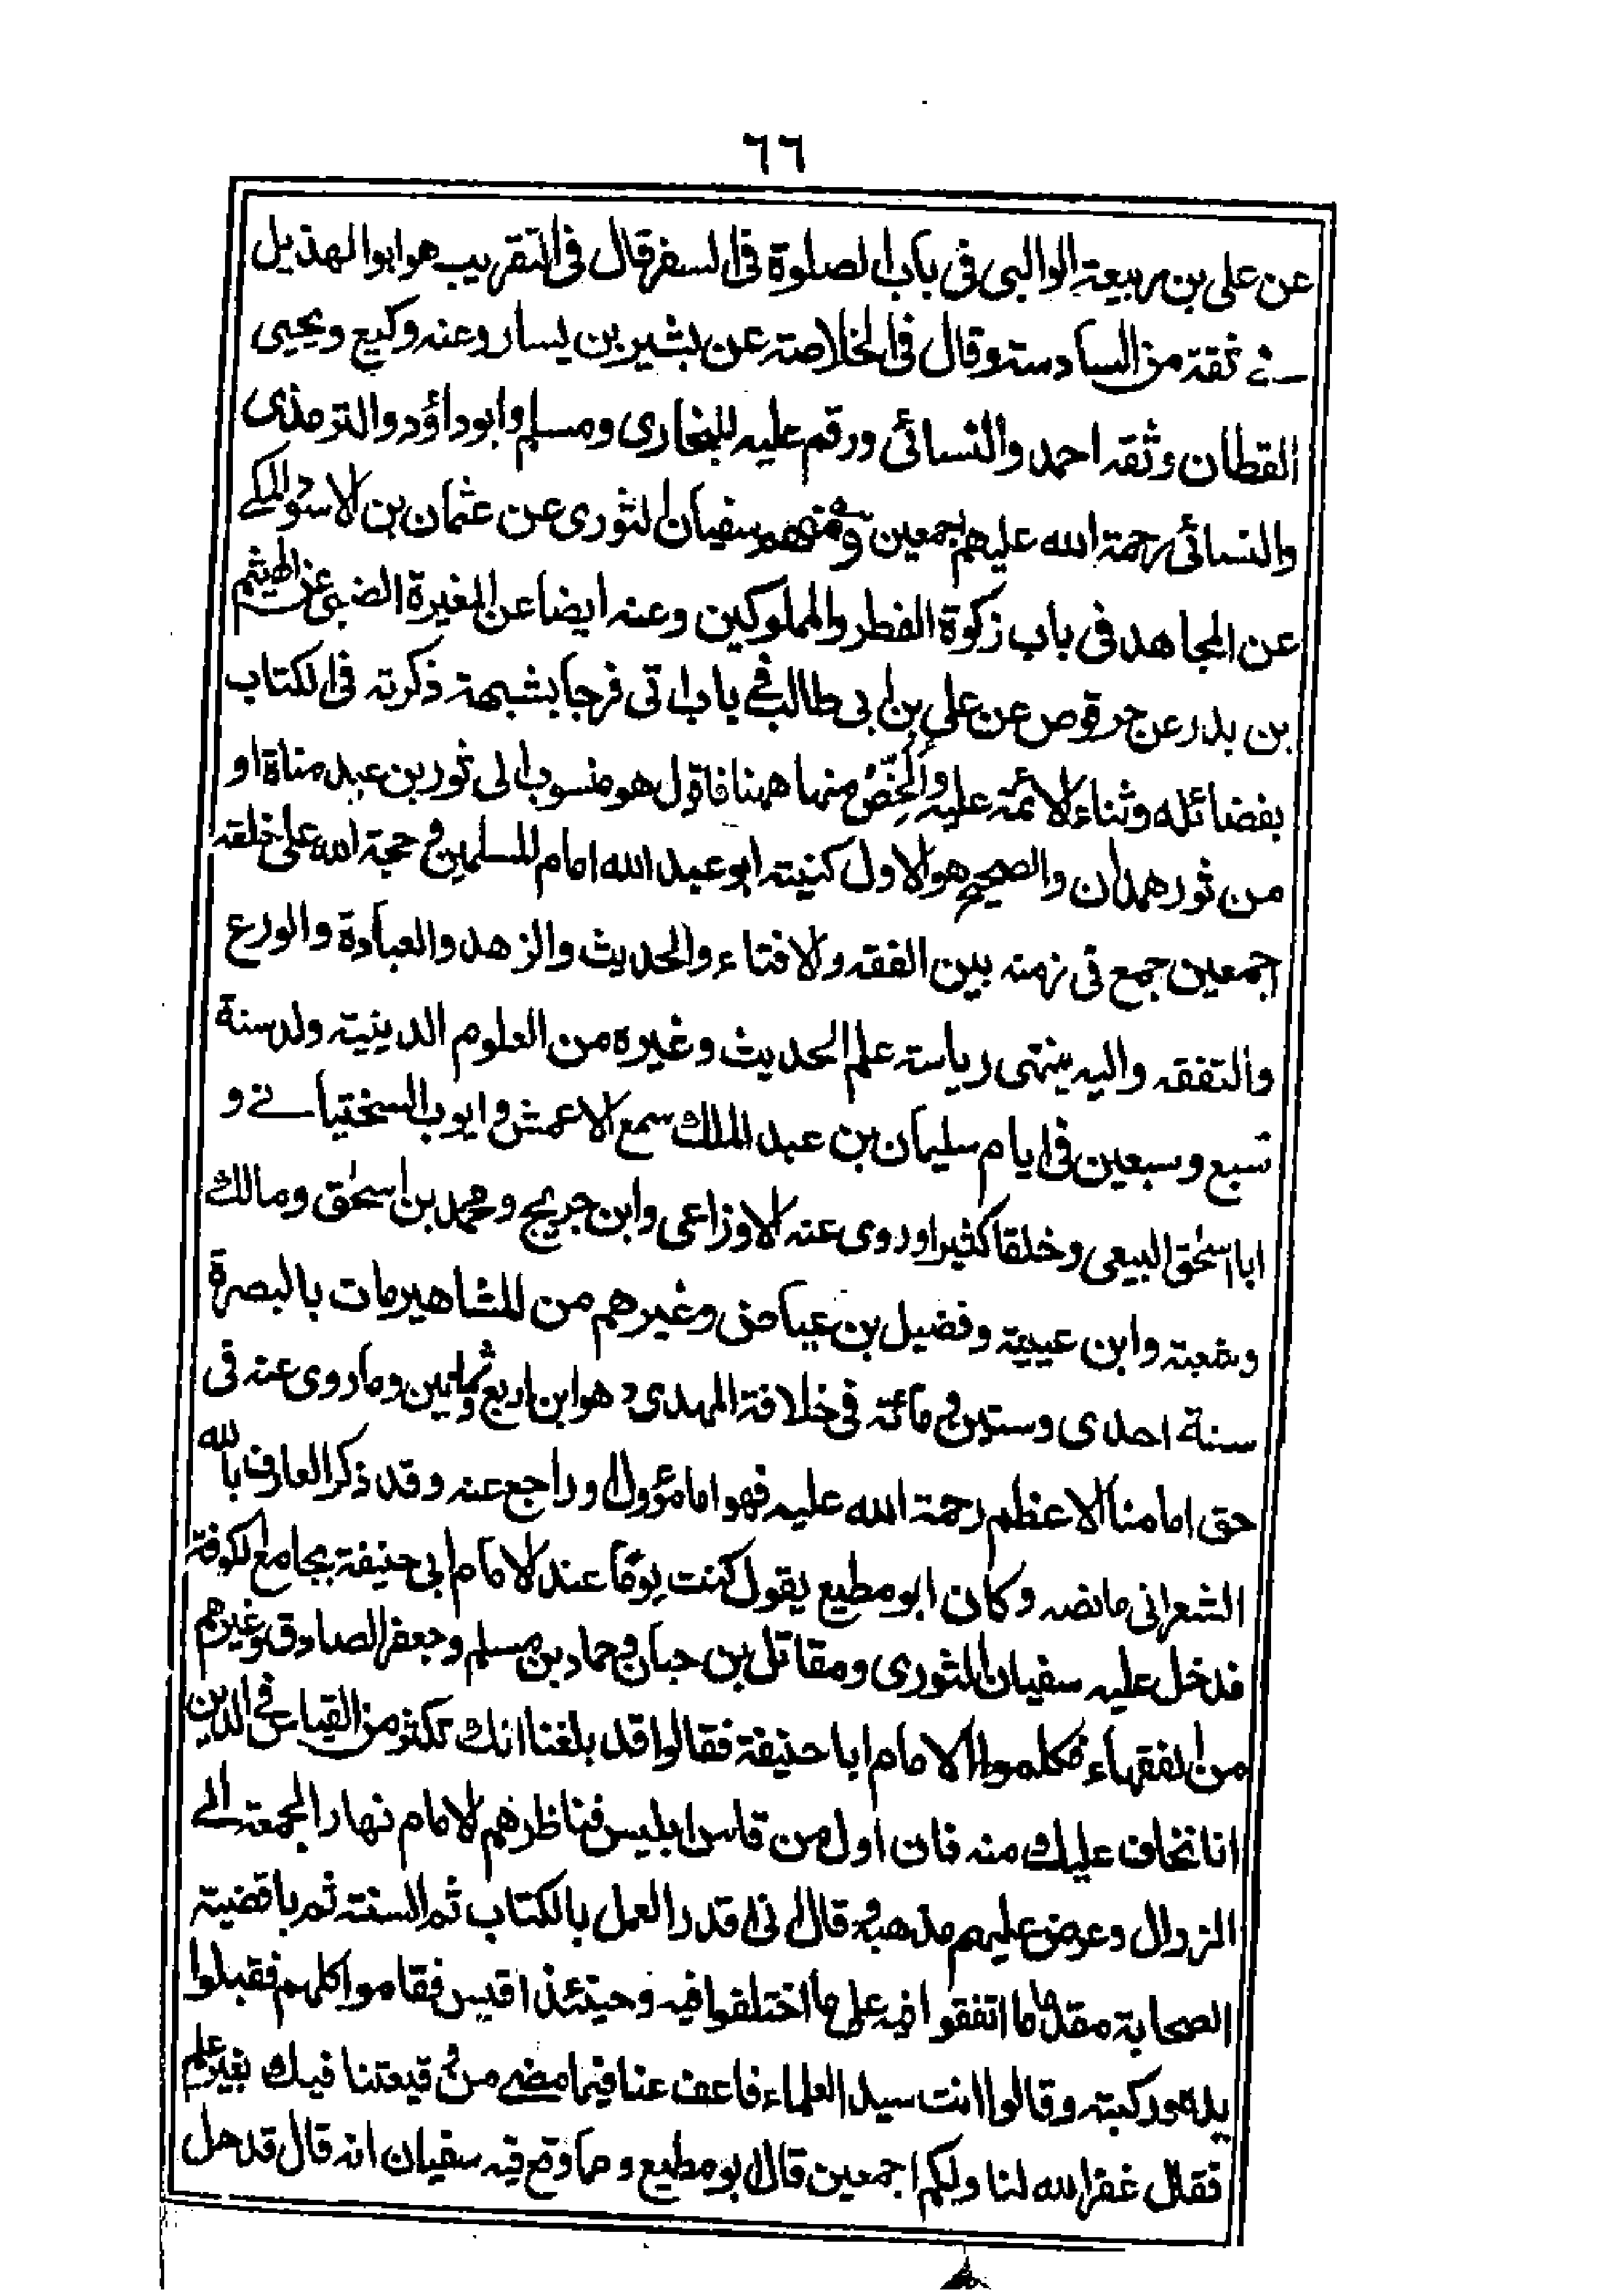 ٦٦
عن علی بن ربیعة الوالبی فی باب الصلوة فی السفر قال فی التقریب هو ابو الهذیل
ثقة من السادسة وقال فی الخلاصة عن بشیر بن یسار وعنه وکیع ویحیی
القطان وثقه احمد والنسائی ورقم علیه للبخاری ومسلم وابو داؤد والترمذی
والنسائی رحمة الله علیهم اجمعین ومنهم سفیان الثوری عن عثمان بن الاسود المکے
عن المجاهد فی باب زکوة الفطر والمملوکین وعنه ایضا عن المغیرة الضبی عن الهیثم
بن بدر عن حرقوص عن علی بن ابی طالب فے باب اتی فرجا بشبهة ذکرته فی الکتاب
بفضائله وثناء الائمة علیه وأُلَخِّصُ منها ههنا فاقول هو منسوب الی ثور بن عبد مناة او
من ثور همدان والصحیح هو الاول کنیته ابو عبد الله امام المسلمین و حجة الله علی خلقه
اجمعین جمع فی زمنه بین الفقه والافتاء والحدیث والزهد والعبادة والورع
والتفقه والیه ینتهی ریاسة علم الحدیث وغیره من العلوم الدینیة ولد سنة
تسع وسبعین فی ایام سلیمان بن عبد الملک سمع الاعمش و ایوب السختیانے و
ابا اسحٰق البیعی وخلقا کثیرا وروی عنه الاوزاعی وابن جریج ومحمد بن اسحٰق ومالک
وشعبة وابن عیینة وفضیل بن عیاض وغیرهم من المشاهیر مات بالبصرة
سنة احدی وستین و مائة فی خلافة المهدی وهو ابن اربع وثمانین وما روی عنه فی
حق امامنا الاعظم رحمة الله علیه فهو اما مؤول او راجع عنه وقد ذکر العارف بالله
الشعرانی ما نصه وکان ابو مطیع یقول کنت یوما عند الامام ابی حنیفة بجامع الکوفة
فدخل علیه سفیان الثوری ومقاتل بن حبان و حماد بن مسلم وجعفر الصادق وغیرهم
من الفقهاء فکلموا الامام ابا حنیفة فقالوا قد بلغنا انک تکثر من القیاس فی الدین
انا نخاف علیک منه فان اول من قاس ابلیس فناظرهم الامام نهار الجمعة الے
الزوال وعرض علیهم مذهبه و قال انی اقدر العمل بالکتاب ثم السنة ثم باقضیة
الصحابة مقدما ما اتفقوا فیه علی ما اختلفوا فیه وحینئذ اقیس فقاموا کلهم فقبلوا
یده ورکبته وقالوا انت سید العلماء فاعف عنا فیما مضے من وقیعتنا فیک بغیر علم
فقال غفر الله لنا ولکم اجمعین قال ابو مطیع ومما وقع فیه سفیان انه قال قد حل